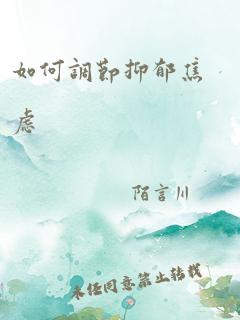 如何調節抑郁焦
虑
陌言川
未经同意禁止转载